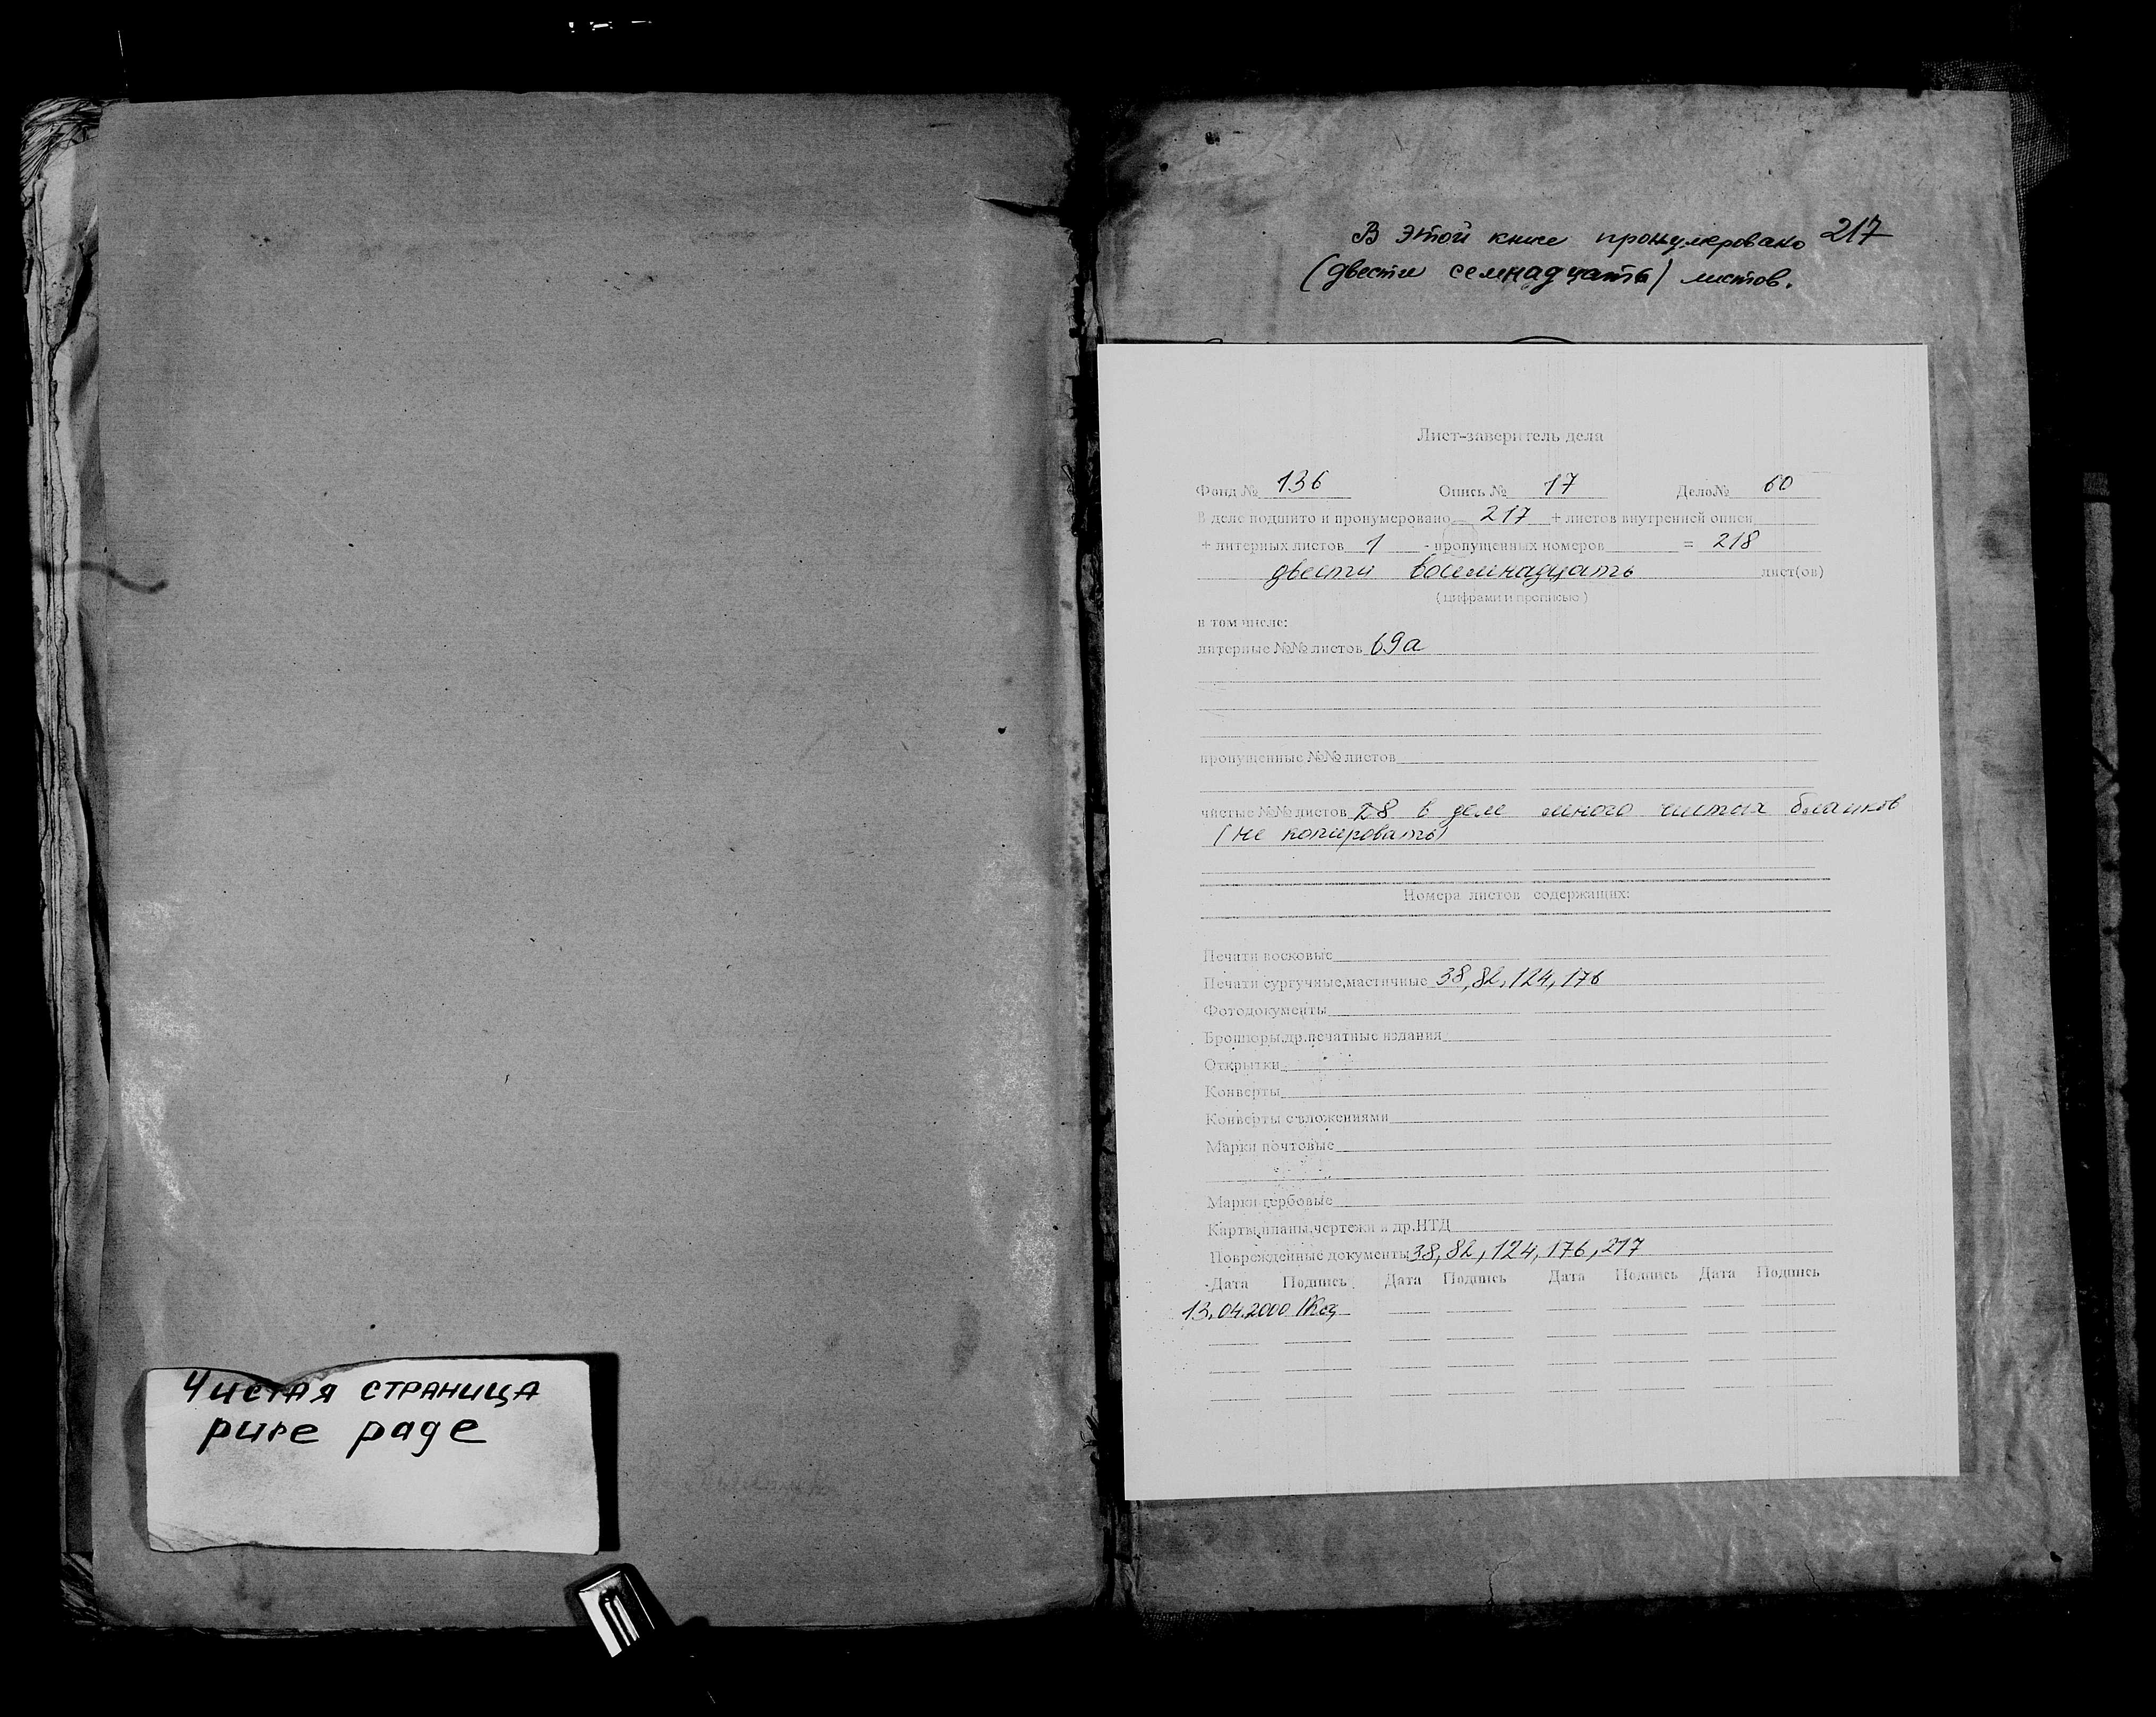 Чистая страница
pure page
В этой книге пронумеровано 217
(двести семнадцать) листов.
Лист-заверитель дела
Фонд № 136 Опись № 17 Дело№ 60
В деле подшито и пронумеровано 217 + листов внутренней описи
+ литерных листов 1 - пропущенных номеров = 218
двести восемнадцать лист(ов)
( цифрами и прописью )
в том числе:
литерные №№ листов 69а
пропущенные №№ листов
чистые №№ листов 28 в деле много чистых бланков
(не копировать)
Номера листов содержащих:
Печати восковые
Печати сургучные,мастичные 38, 82, 124, 176
Фотодокументы
Брошюры,др.печатные издания
Открытки
Конверты
Конверты с вложениями
Марки почтовые
Марки гербовые
Карты,планы,чертежи и др.НТД
Поврежденные документы 38, 82, 124, 176, 217
Дата Подпись Дата Подпись Дата Подпись Дата Подпись
13.04.2000